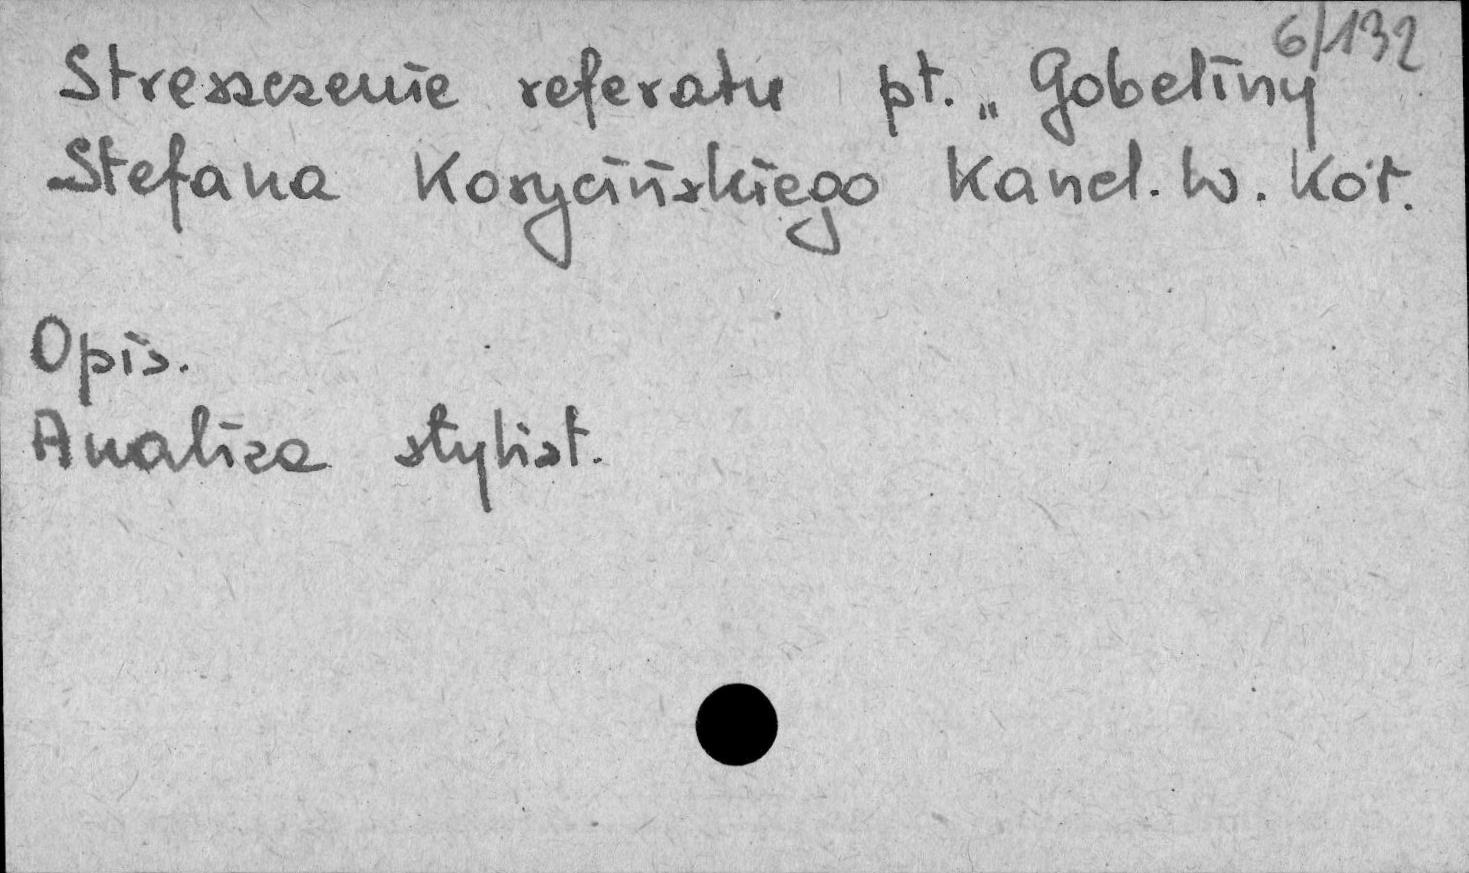 6/132
Streszczenie referatu pt. „Gobeliny
Stefana Korycińskiego Kancl. W. Kor.
Opis.
Analiza stylist.